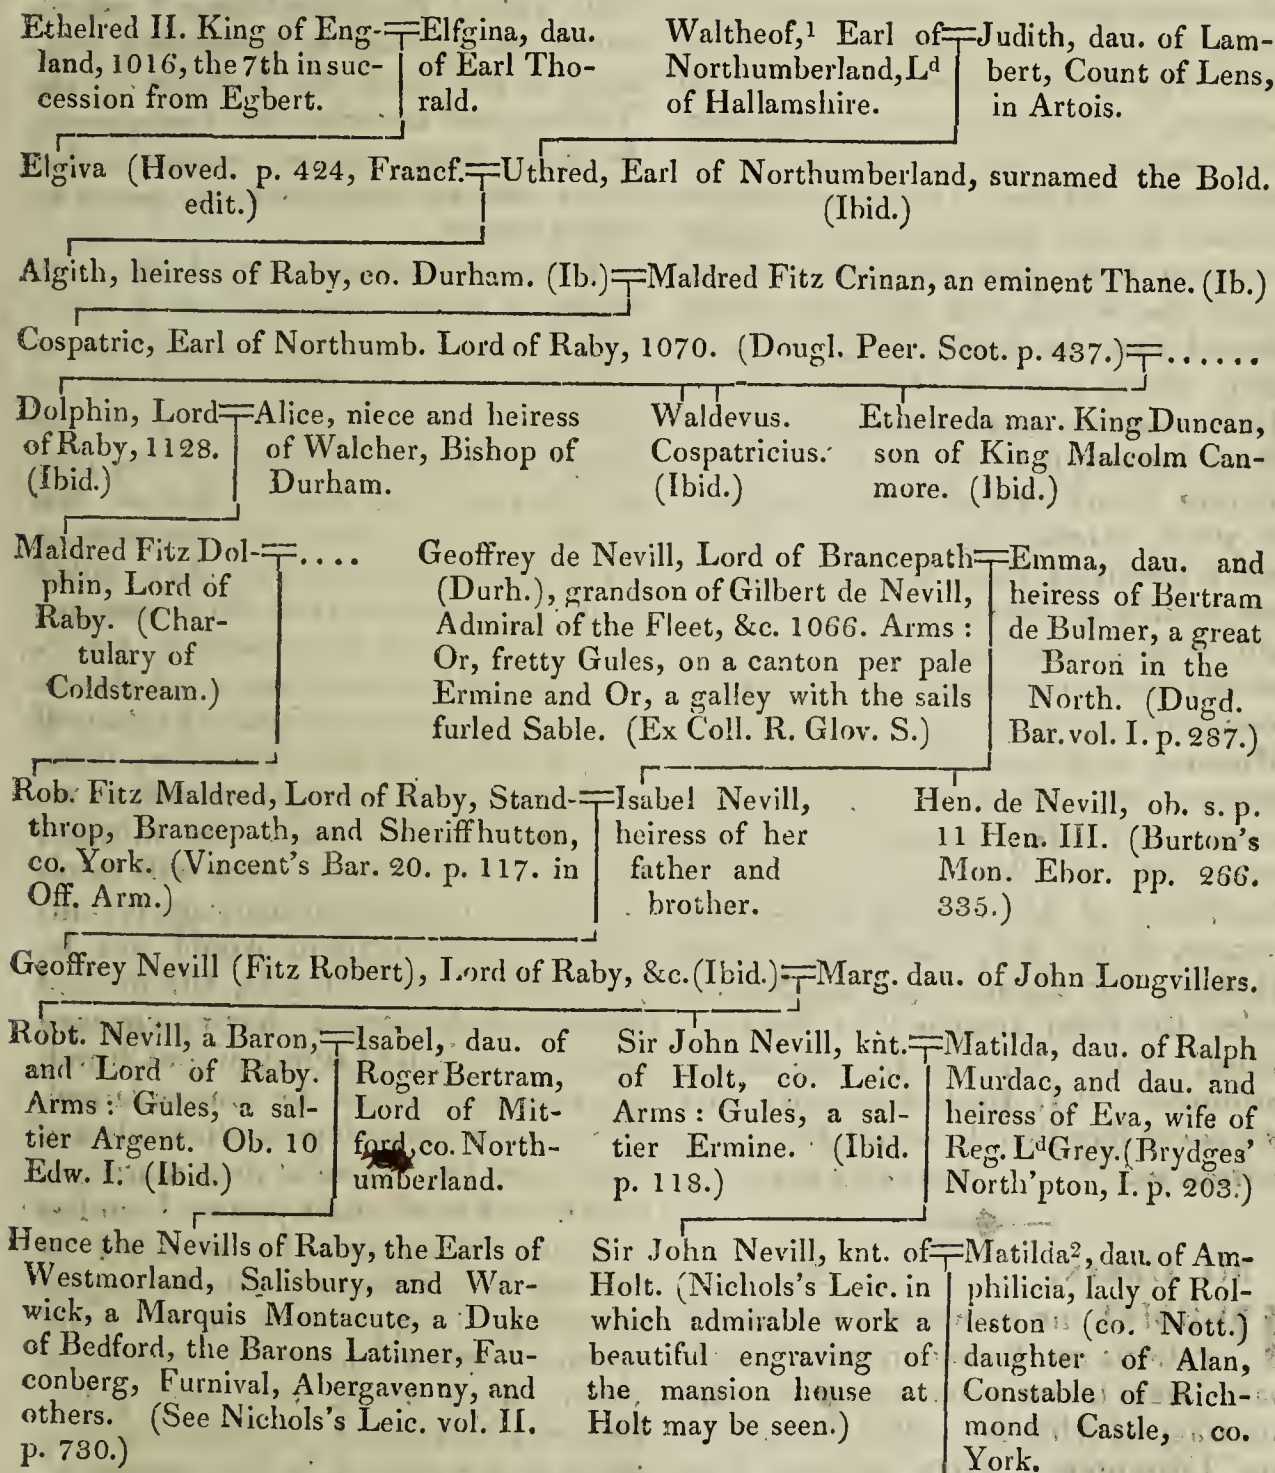 Ethelred II. King of Eng-
land, 1016, the 7th in suc-
cession from Egbert.
Elfgina, dau.
of Earl Tho-
rald.
Waltheof,¹ Earl of
Northumberland, Lᵈ
of Hallamshire.
Judith, dau. of Lam-
bert, Count of Lens,
in Artois.
Elgiva (Hoved. p. 424, Francf.
edit.)
Uthred, Earl of Northumberland, surnamed the Bold.
(Ibid.)
Algith, heiress of Raby, co. Durham. (Ib.)
Maldred Fitz Crinan, an eminent Thane. (Ib.)
Cospatric, Earl of Northumb. Lord of Raby, 1070. (Dougl. Peer. Scot. p. 437.) ......
Dolphin, Lord
of Raby, 1128.
(Ibid.)
Alice, niece and heiress
of Walcher, Bishop of
Durham.
Waldevus.
Cospatricius.
(Ibid.)
Ethelreda mar. King Duncan,
son of King Malcolm Can-
more. (Ibid.)
Maldred Fitz Dol-
phin, Lord of
Raby. (Char-
tulary of
Coldstream.)
....
Geoffrey de Nevill, Lord of Brancepath
(Durh.), grandson of Gilbert de Nevill,
Admiral of the Fleet, &c. 1066. Arms :
Or, fretty Gules, on a canton per pale
Ermine and Or, a galley with the sails
furled Sable. (Ex Coll. R. Glov. S.)
Emma, dau. and
heiress of Bertram
de Bulmer, a great
Baron in the
North. (Dugd.
Bar. vol. I. p. 287.)
Rob. Fitz Maldred, Lord of Raby, Stand-
throp, Brancepath, and Sheriffhutton,
co. York. (Vincent's Bar. 20. p. 117. in
Off. Arm.)
Isabel Nevill,
heiress of her
father and
brother.
Hen. de Nevill, ob. s. p.
11 Hen. III. (Burton's
Mon. Ebor. pp. 266.
335.)
Geoffrey Nevill (Fitz Robert), Lord of Raby, &c. (Ibid.)
Marg. dau. of John Longvillers.
Robt. Nevill, a Baron,
and Lord of Raby.
Arms : Gules, a sal-
tier Argent. Ob. 10
Edw. I. (Ibid.)
Isabel, dau. of
Roger Bertram,
Lord of Mit-
ford, co. North-
umberland.
Sir John Nevill, knt.
of Holt, co. Leic.
Arms : Gules, a sal-
tier Ermine. (Ibid.
p. 118.)
Matilda, dau. of Ralph
Murdac, and dau. and
heiress of Eva, wife of
Reg. Lᵈ Grey. (Brydges'
North'pton, I. p. 203.)
Hence the Nevills of Raby, the Earls of
Westmorland, Salisbury, and War-
wick, a Marquis Montacute, a Duke
of Bedford, the Barons Latimer, Fau-
conberg, Furnival, Abergavenny, and
others. (See Nichols's Leic. vol. II.
p. 730.)
Sir John Nevill, knt. of
Holt. (Nichols's Leic. in
which admirable work a
beautiful engraving of
the mansion house at
Holt may be seen.)
Matilda², dau. of Am-
philicia, lady of Rol-
leston (co. Nott.)
daughter of Alan,
Constable of Rich-
mond Castle, co.
York.